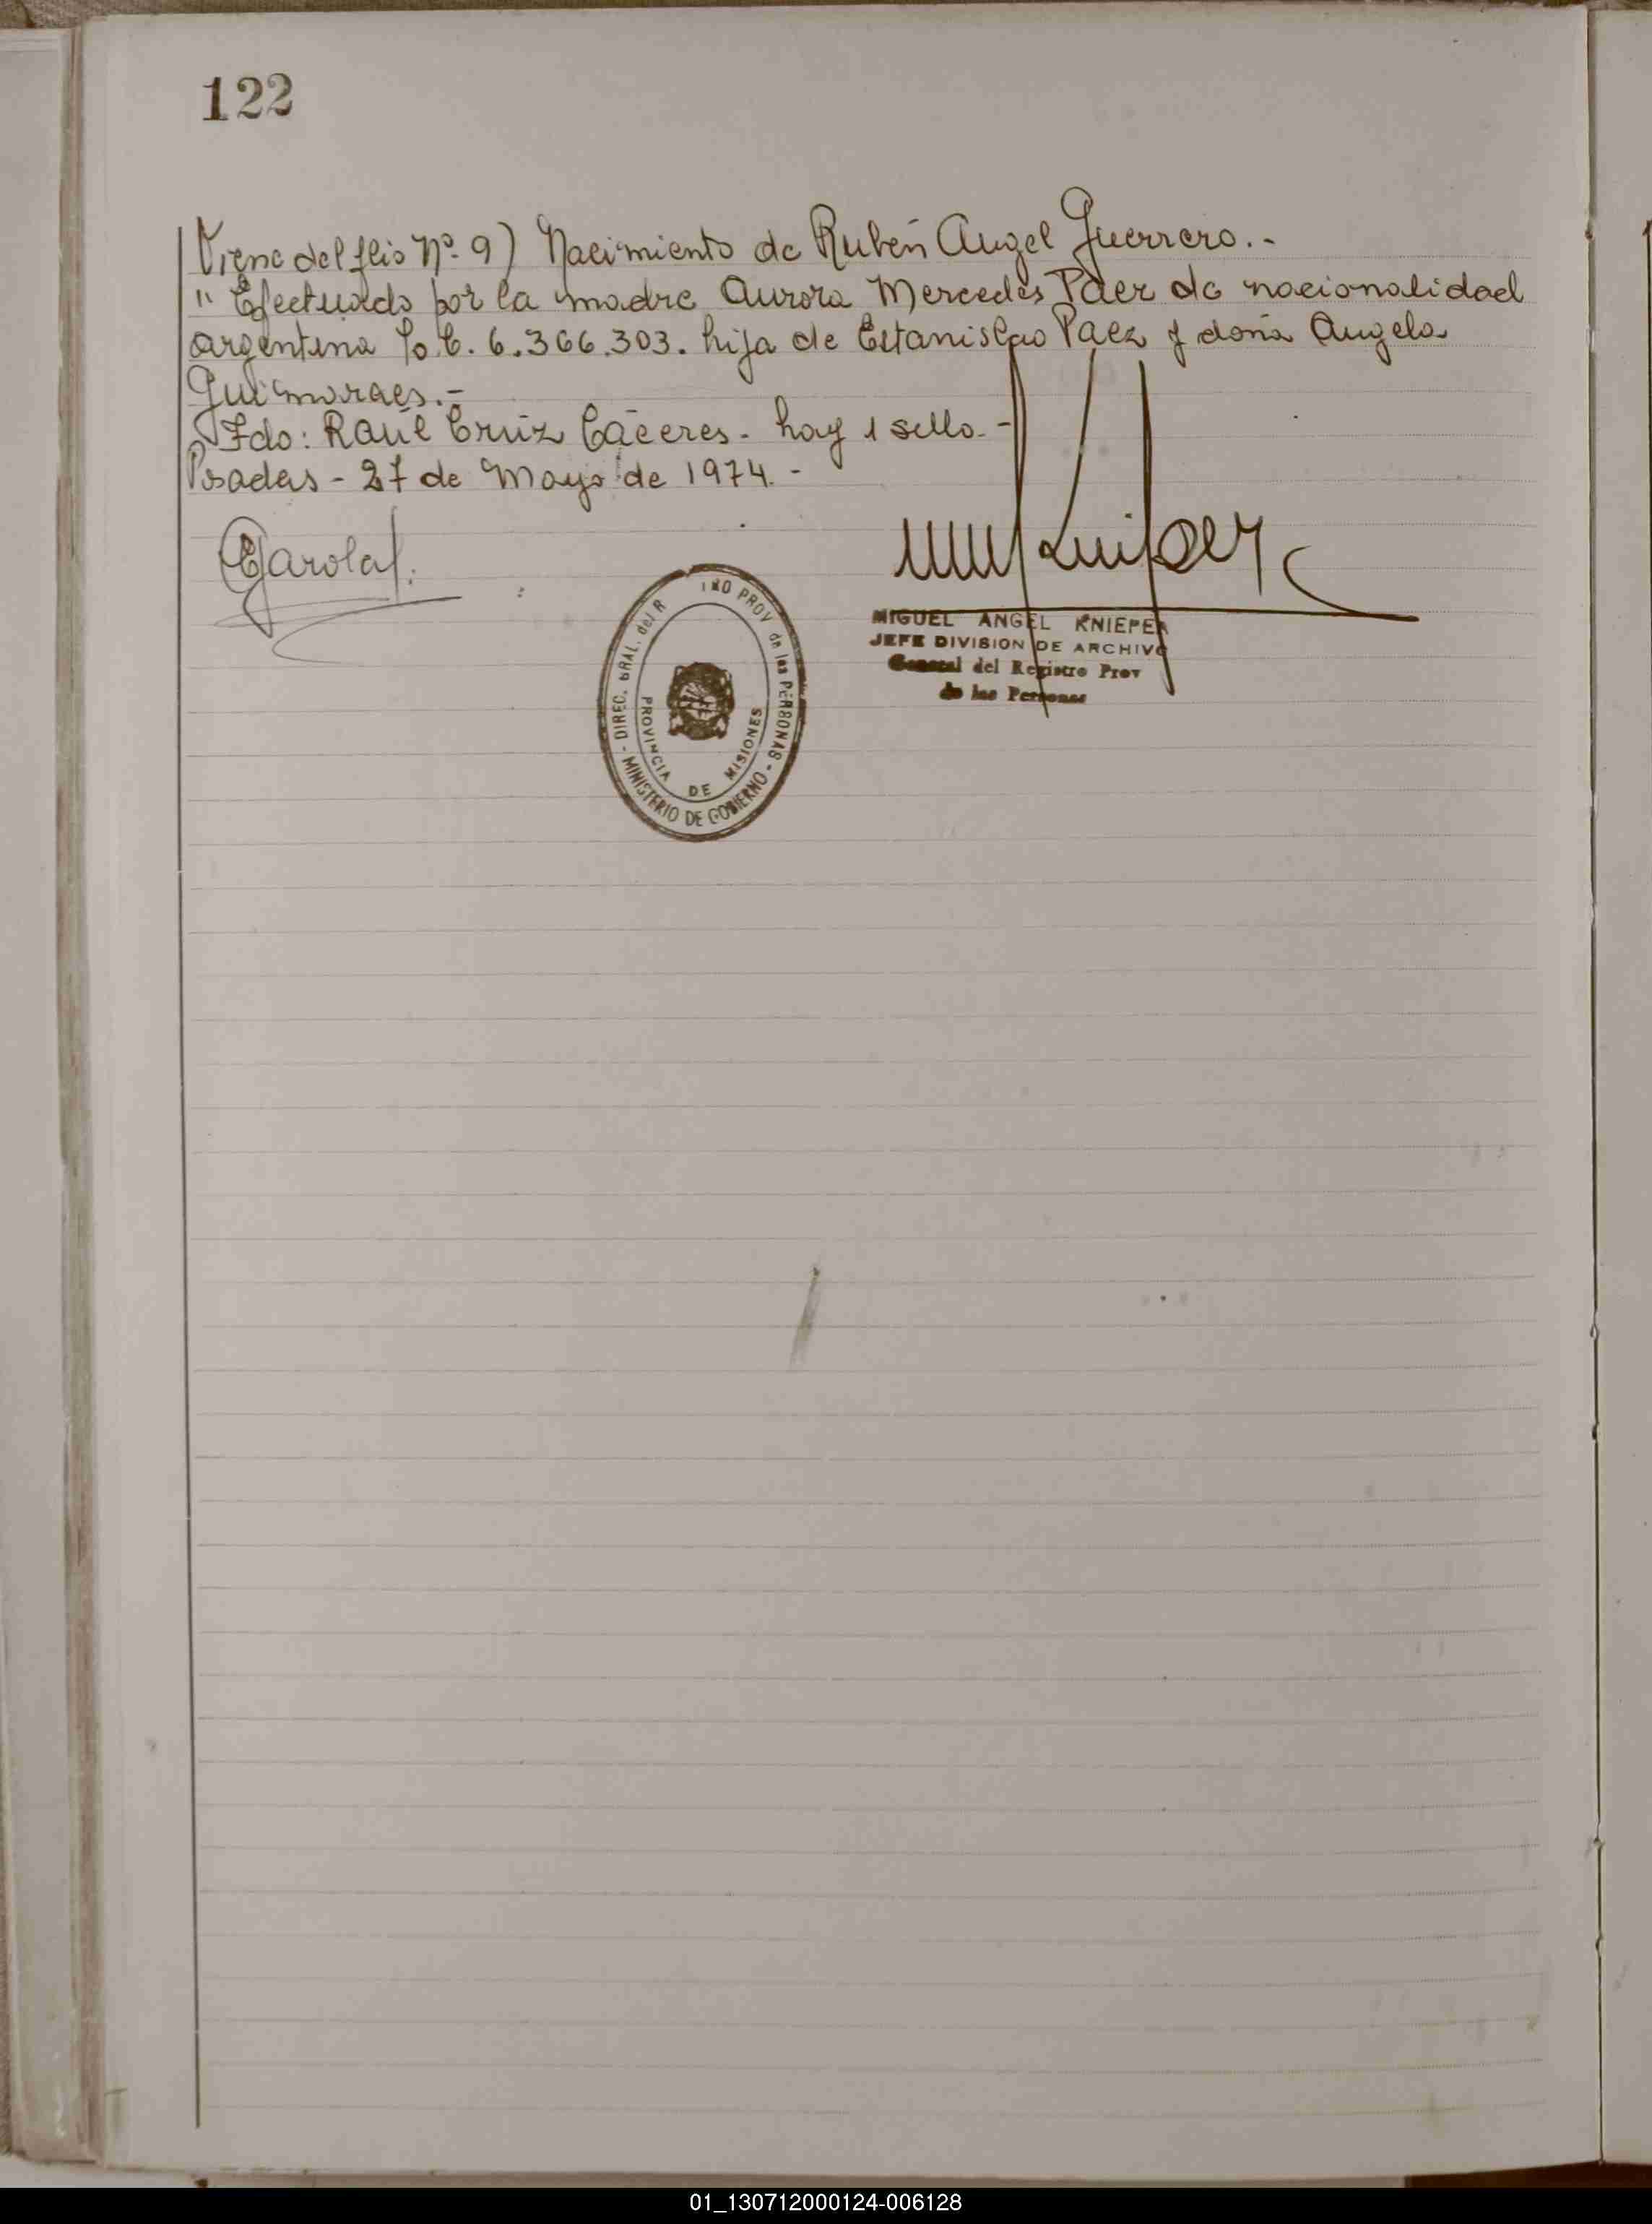 122
Viene del flio Nº 9) Nacimiento de Rubén Angel Guerrero.-
" Efectuado por la madre Aurora Mercedes Paez de nacionalidad
argentina L.C. 6.366.303. hija de Estanislao Paez y doña Angela
Guimaraes.-
Fdo: Raúl Cruz Cáceres - hay 1 sello -
Posadas - 27 de Mayo de 1974. -
MIGUEL ANGEL KNIEPER
JEFE DIVISION DE ARCHIVO
General del Registro Prov
de las Personas
DIREC. GRAL. del R
TRO PROV de las PERSONAS
- MINISTERIO DE GOBIERNO -
PROVINCIA DE MISIONES
01_130712000124-006128